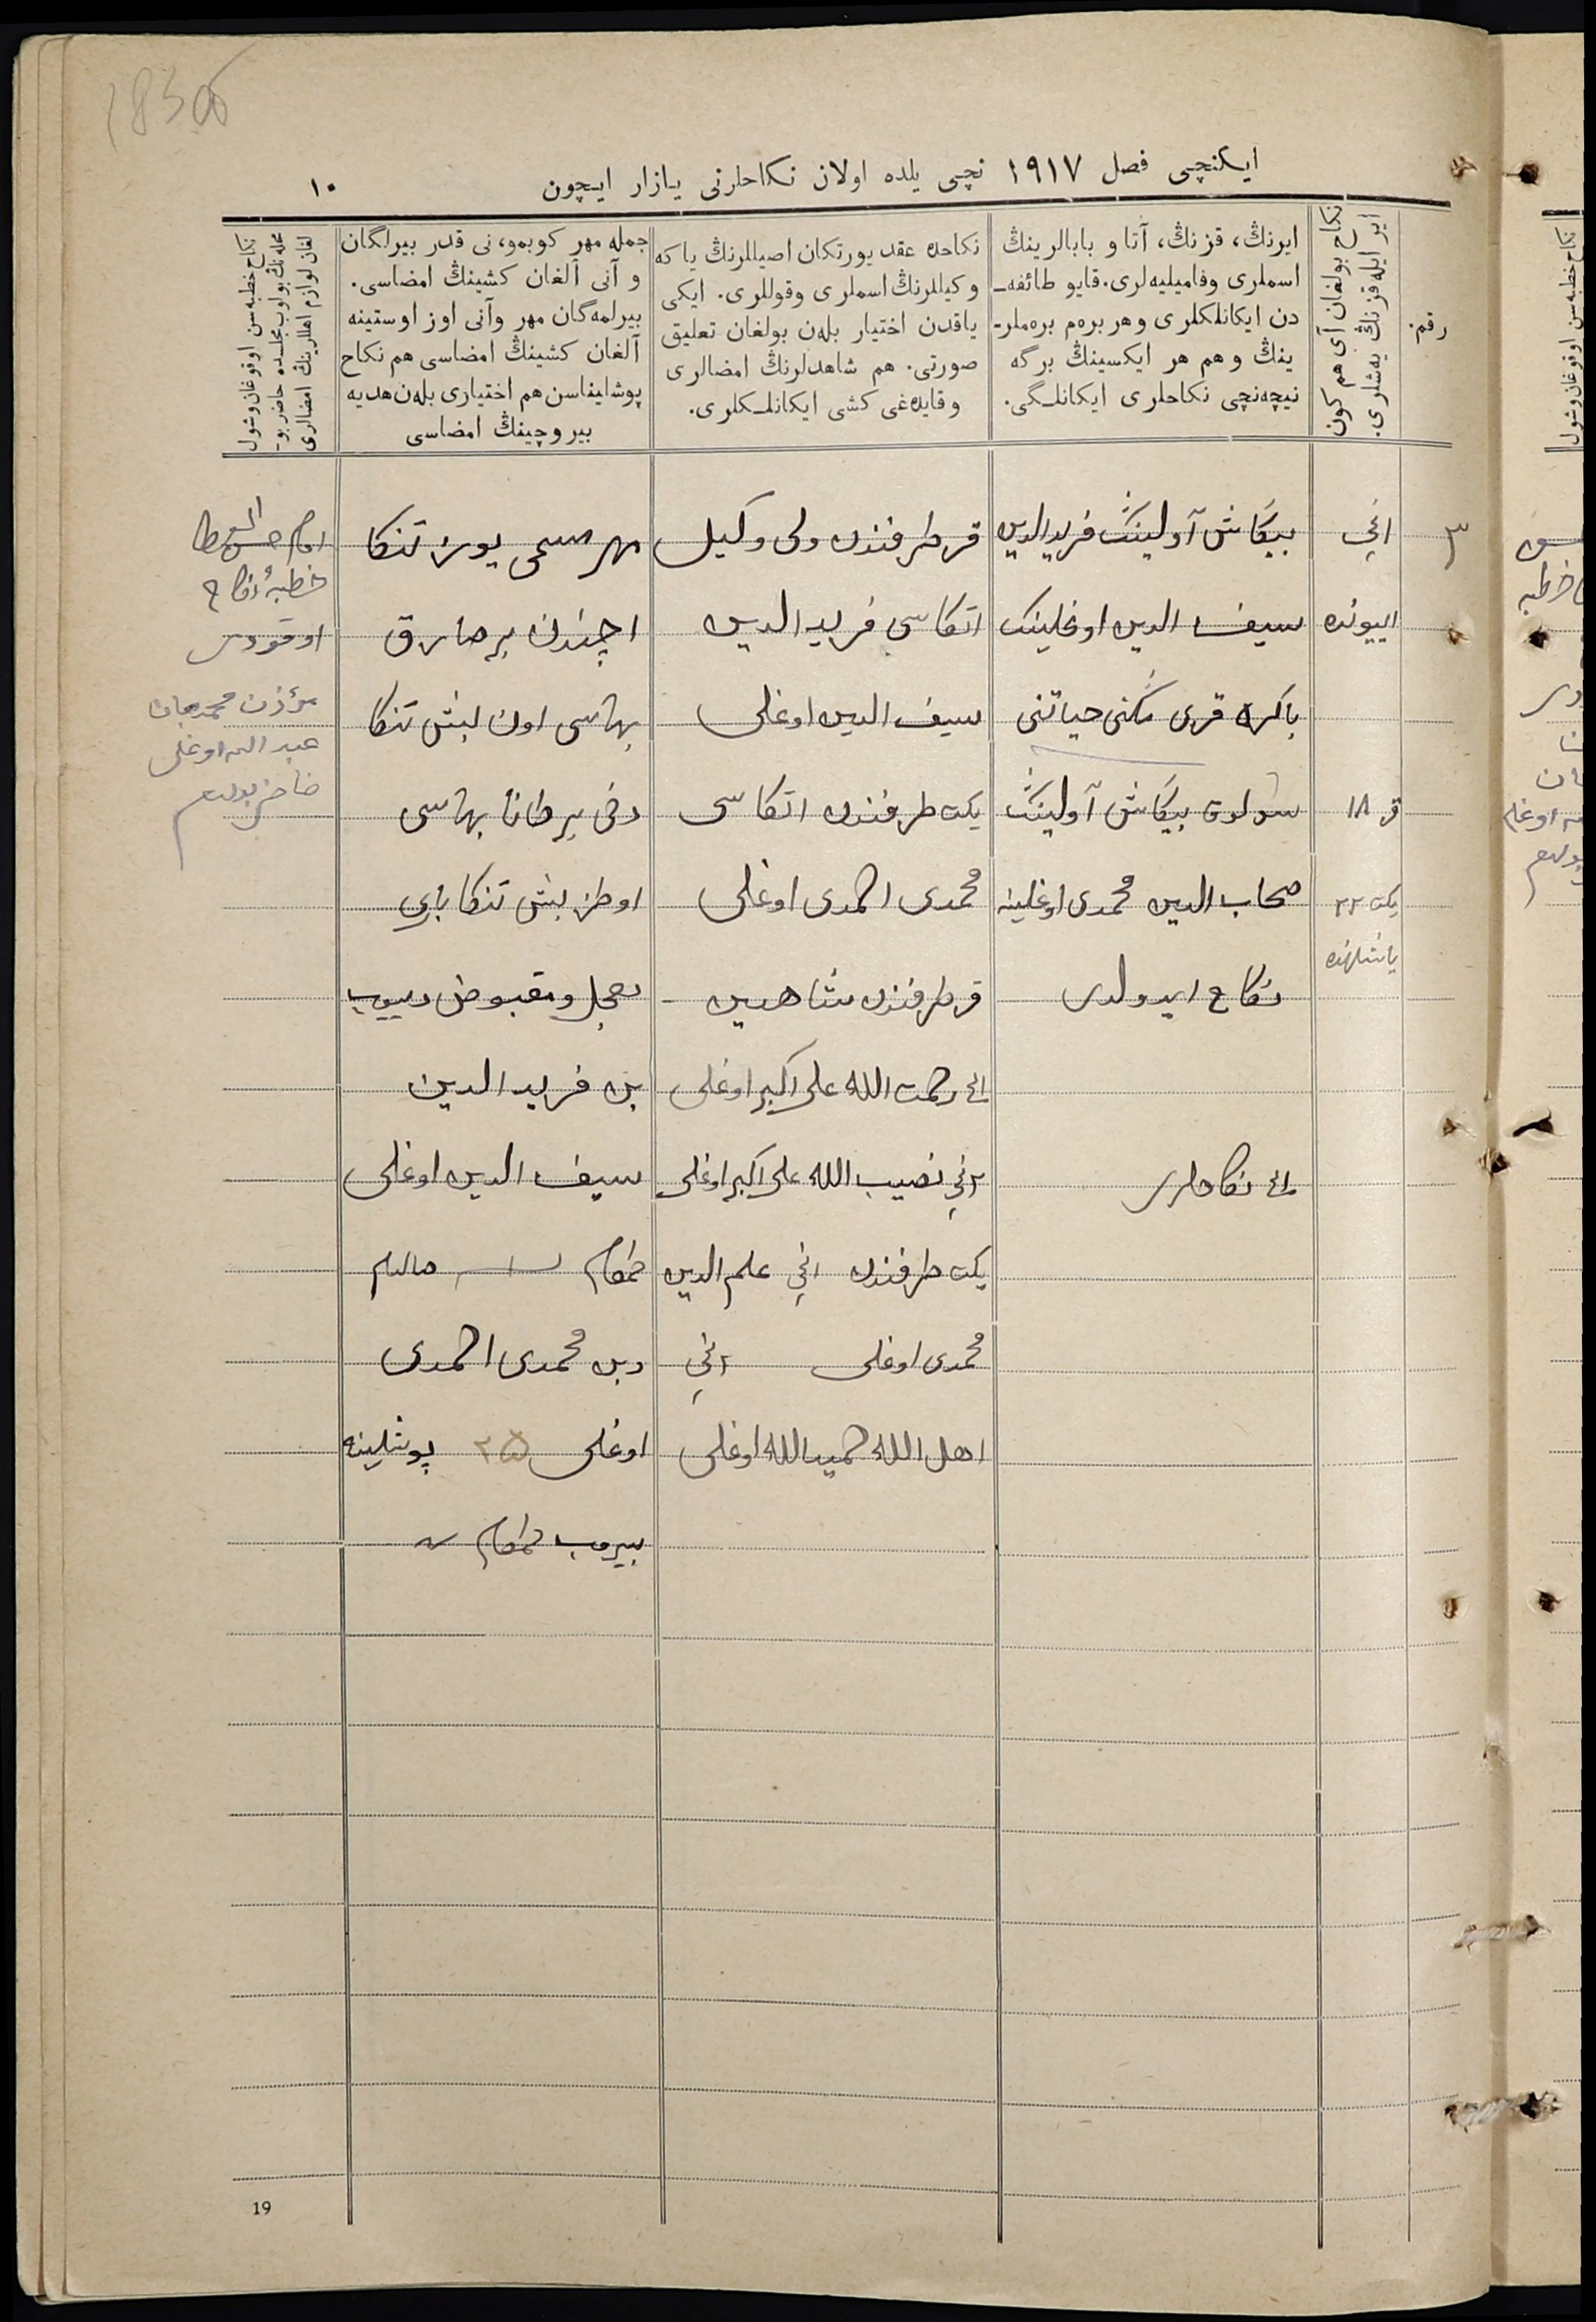 ایکنچی فصل ١٩١٧ نچی یلده اولان نکاحلرنی یازار ایچون
١٠
رقم.
نکاح بولغان آی هم کون
ایر ایله قزنڭ یه‌شلری.
ایرنڭ، قزنڭ، آتا و بابالرینڭ
اسملری وفامیلیه‌لری. قایو طائفه‌ـ
دن ایکانلکلری و هر بره‌م بره‌ملرـ
ینڭ و هم هر ایکسینڭ برگه
نیچه‌نچی نکاحلری ایکانلـگی.
نکاحده عقد یورتکان اصیللرنڭ یا که
وکیللرنڭ اسملری وقوللری. ایکی
یاقدن اختیار بله‌ن بولغان تعلیق
صورتی. هم شاهدلرنڭ امضالری
وقایده‌غی کشی ایکانلـکلری.
جمله مهر کوبمو، نی قدر بیرلگان
و آنی آلغان کشینڭ امضاسی.
بیرلمه‌گان مهر وآنی اوز اوستینه
آلغان کشینڭ امضاسی هم نکاح
پوشلیناسن هم اختیاری بله‌ن هدیه
بیروچینڭ امضاسی
نکاح خطبه‌سن اوقوغان وشول
محله‌نڭ بولوب مجلسده حاضر بوـ
لغان لوازم اهللرینڭ امضالری
٣
١نچی
اییونده
قز ١٨
یکت ٢٢
یاشلرنده
بیکاش آولینڭ فریدالدین
سیف الدین اوغلینڭ
باکره قزی حیاتنی
بیکاش آولینڭ
صحاب الدین محمدی اوغلینه
نکاح ایدولدی
نکاحلری
قز طرفندن ولی وکیل
اتکاسی فرید الدین
سیف الدین اوغلی
یکت طرفندن اتکاسی
محمدی احمدی اوغلی
قز طرفندن شاهدین
رحمت الله علی اکبر اوغلی
٢نچی نصیب الله علی اکبر اوغلی
یکت طرفندن ١نچی علم الدین
محمدی اوغلی ٢نچی
اهل الله حمیدالله اوغلی
مهر مسمی یوز تنکا
اچندن بر صارق
بهاسی اون بیش تنکا
دخی بر طانا بهاسی
اوطز بیش تنکا باری
معجل و مقبوض دییوب
بن فرید الدین
سیف الدین اوغلی
تمغام
وبن محمدی احمدی
اوغلی ٢٥ پوشلینه
بیروب تمغام
امام
خطبهٔ نکاح
اوقودی
مؤذن محمدجان
عبدالله اوغلی
حاضر بولدم
19